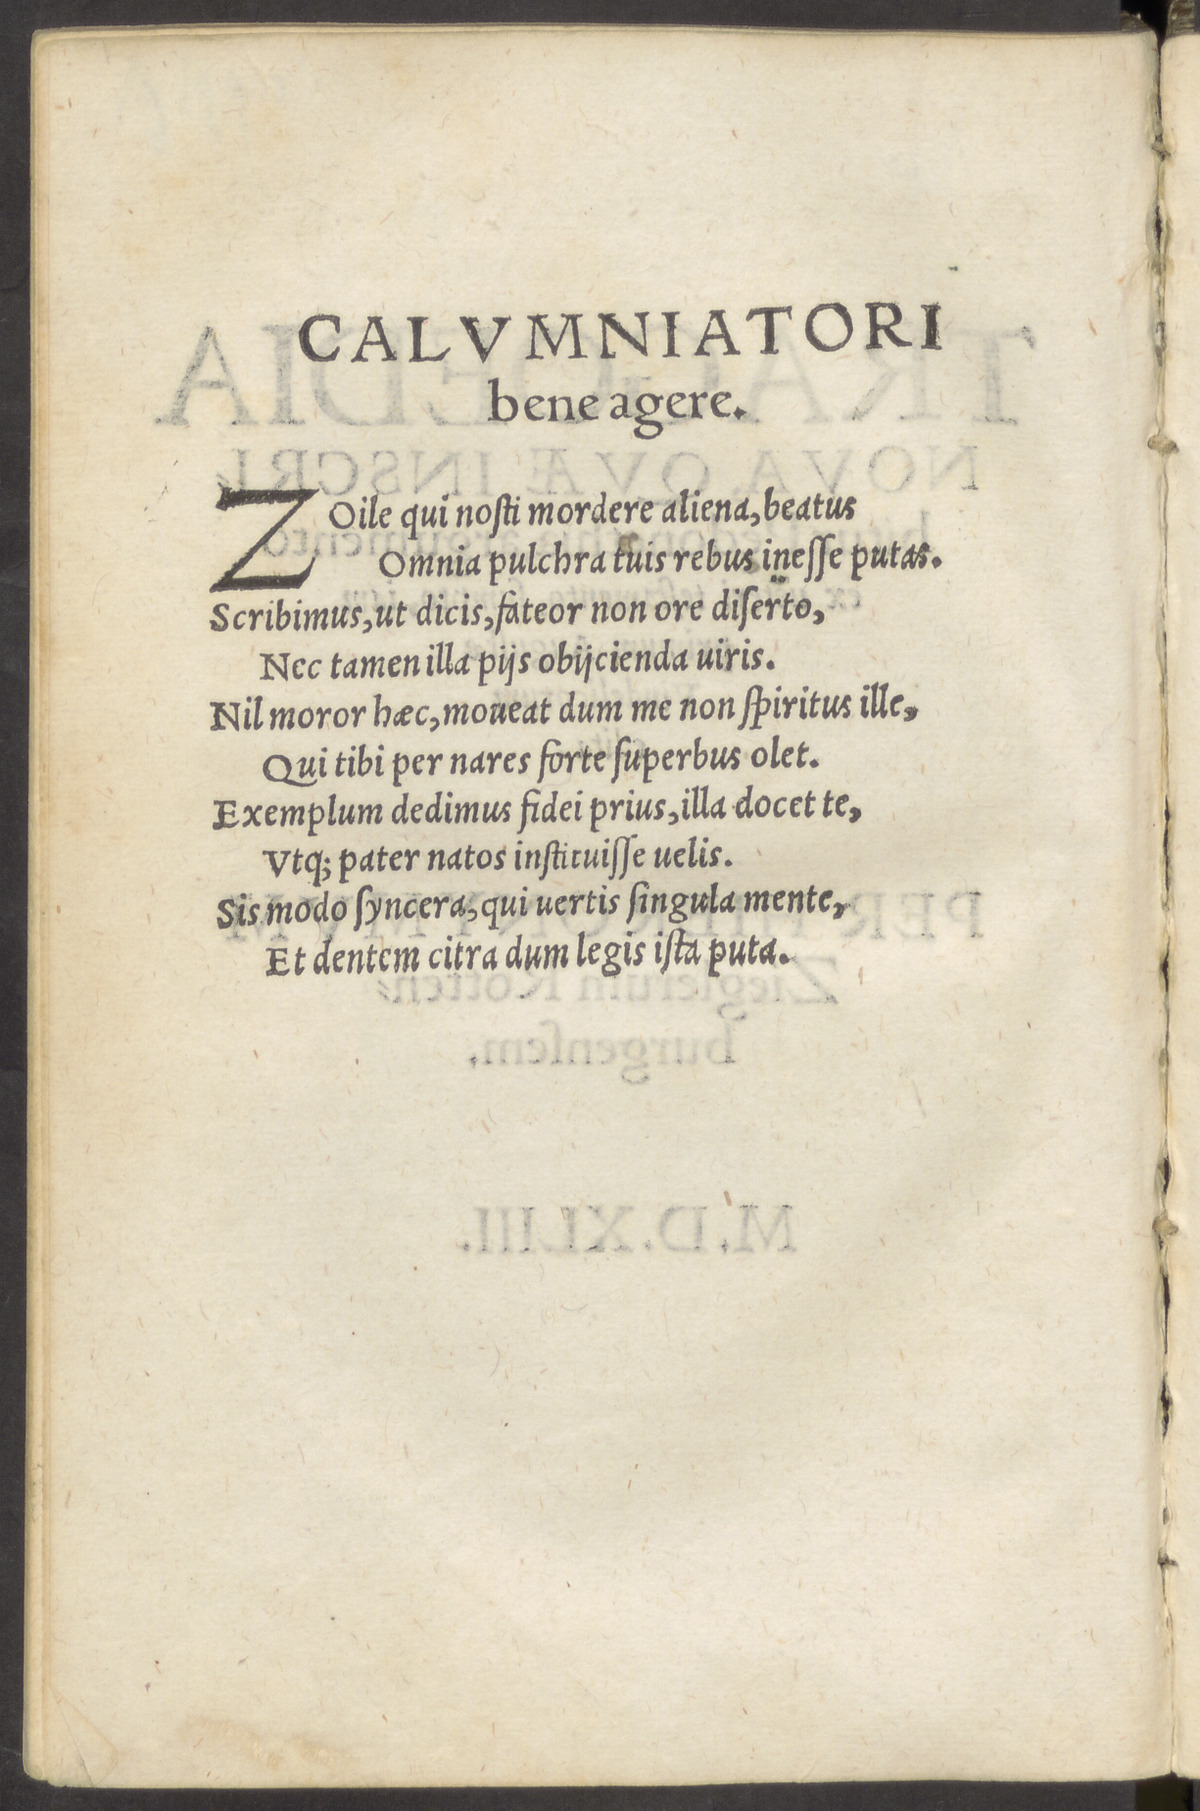 CALVMNIATORI
bene agere.
ZOile qui noſti mordere aliena, beatus
Omnia pulchra tuis rebus ineſſe putas.
Scribimus, ut dicis, fateor non ore diſerto,
Nec tamen illa pijs obijcienda uiris.
Nil moror hæc, moueat dum me non ſpiritus ille,
Qui tibi per nares forte ſuperbus olet.
Exemplum dedimus fidei prius, illa docet te,
Vtq; pater natos inſtituiſſe uelis.
Sis modo ſyncera, qui uertis ſingula mente,
Et dentem citra dum legis iſta puta.